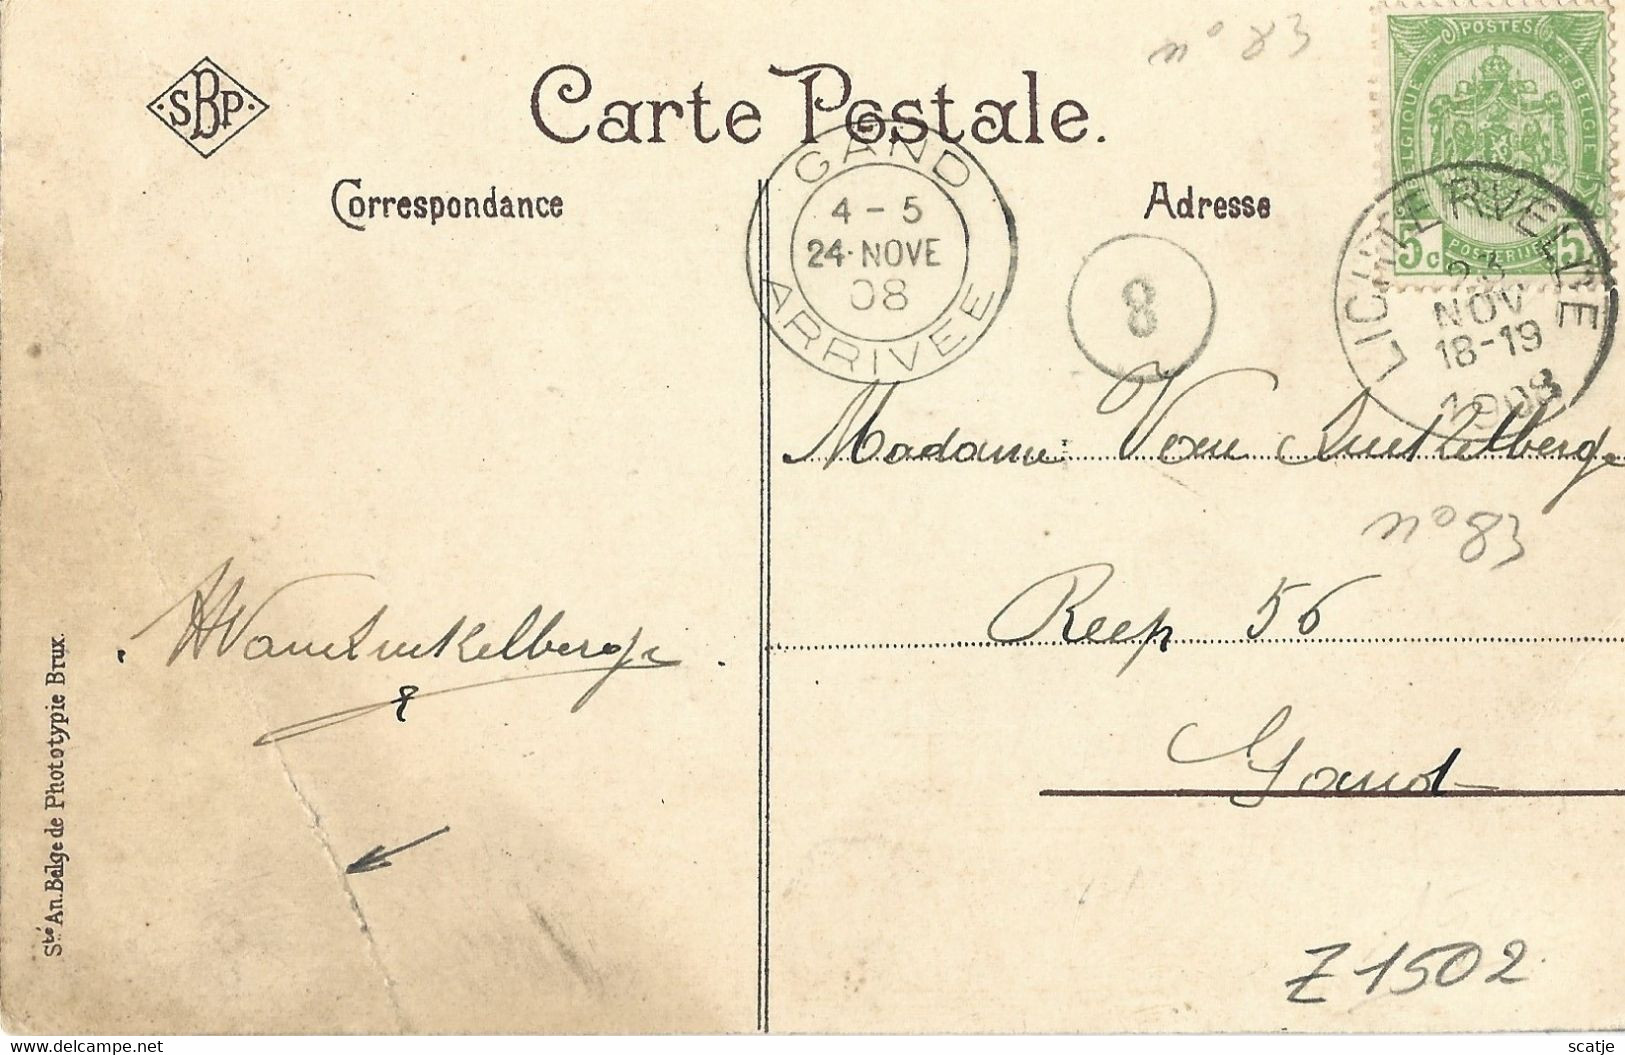 n° 83
SBP
Carte Postale.
POSTES
BELGIQUE
BELGIE
5c
POSTERIJEN
5c
Correspondance
Adresse
GAND
4 - 5
24·NOVE
08
ARRIVEE
8
LICHTERVELDE
23
NOV
18-19
1908
Madame Van Quickelberge
n° 83
Reep 56
HVanQuickelberge
Gand
Sté An. Belge de Phototypie Brux.
Z1502
scatje